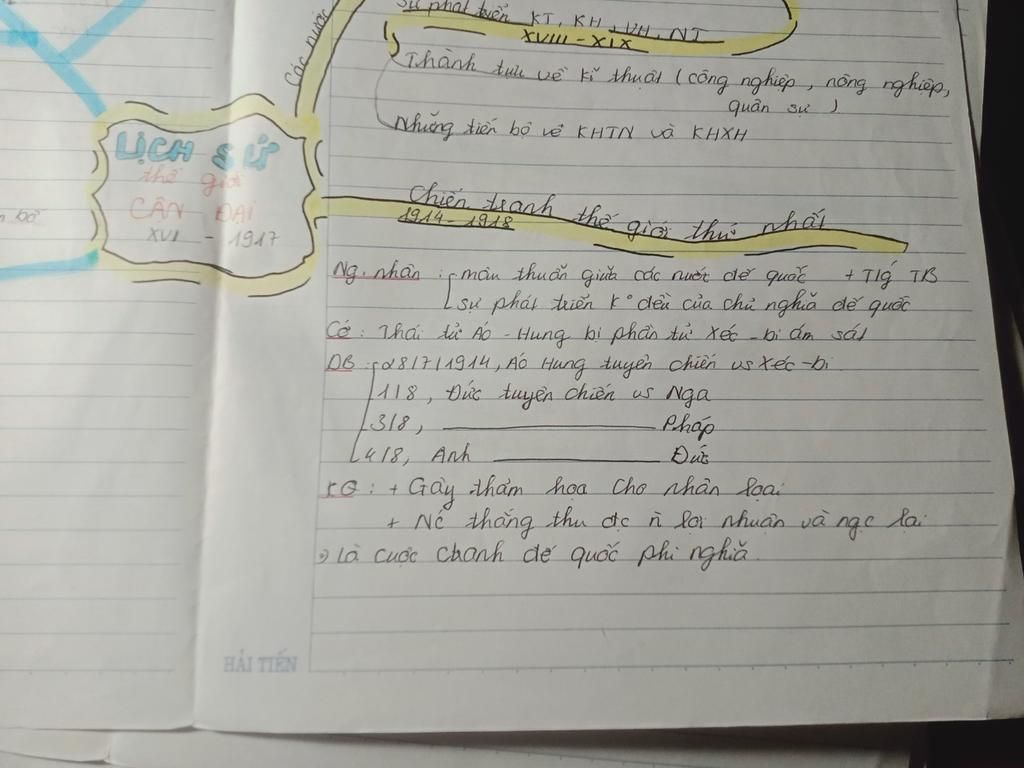 Sự phát triển KT, KH, VH, NT
XVIII - XIX
Thành tựu về kĩ thuật (công nghiệp, nông nghiệp,
quân sự)
Những tiến bộ về KHTN và KHXH
Các nước
LỊCH SỬ
thế giới
CẬN ĐẠI
XVI - 1917
bộ
Chiến tranh thế giới thứ nhất
1914 - 1918
Ng. nhân : mâu thuẫn giữa các nước đế quốc + T/g TB
sự phát triển k° đều của chủ nghĩa đế quốc
Cớ : Thái tử Áo - Hung bị phần tử Xéc - bi ám sát
DB : 28/7/1914, Áo Hung tuyên chiến vs Xéc - bi
1/8, Đức tuyên chiến vs Nga
3/8, ——— Pháp
4/8, Anh ——— Đức
KQ : + Gây thảm họa cho nhân loại
+ Nc thắng thu đc n lợi nhuận và ngc lại
Là cuộc chanh đế quốc phi nghĩa.
HẢI TIẾN